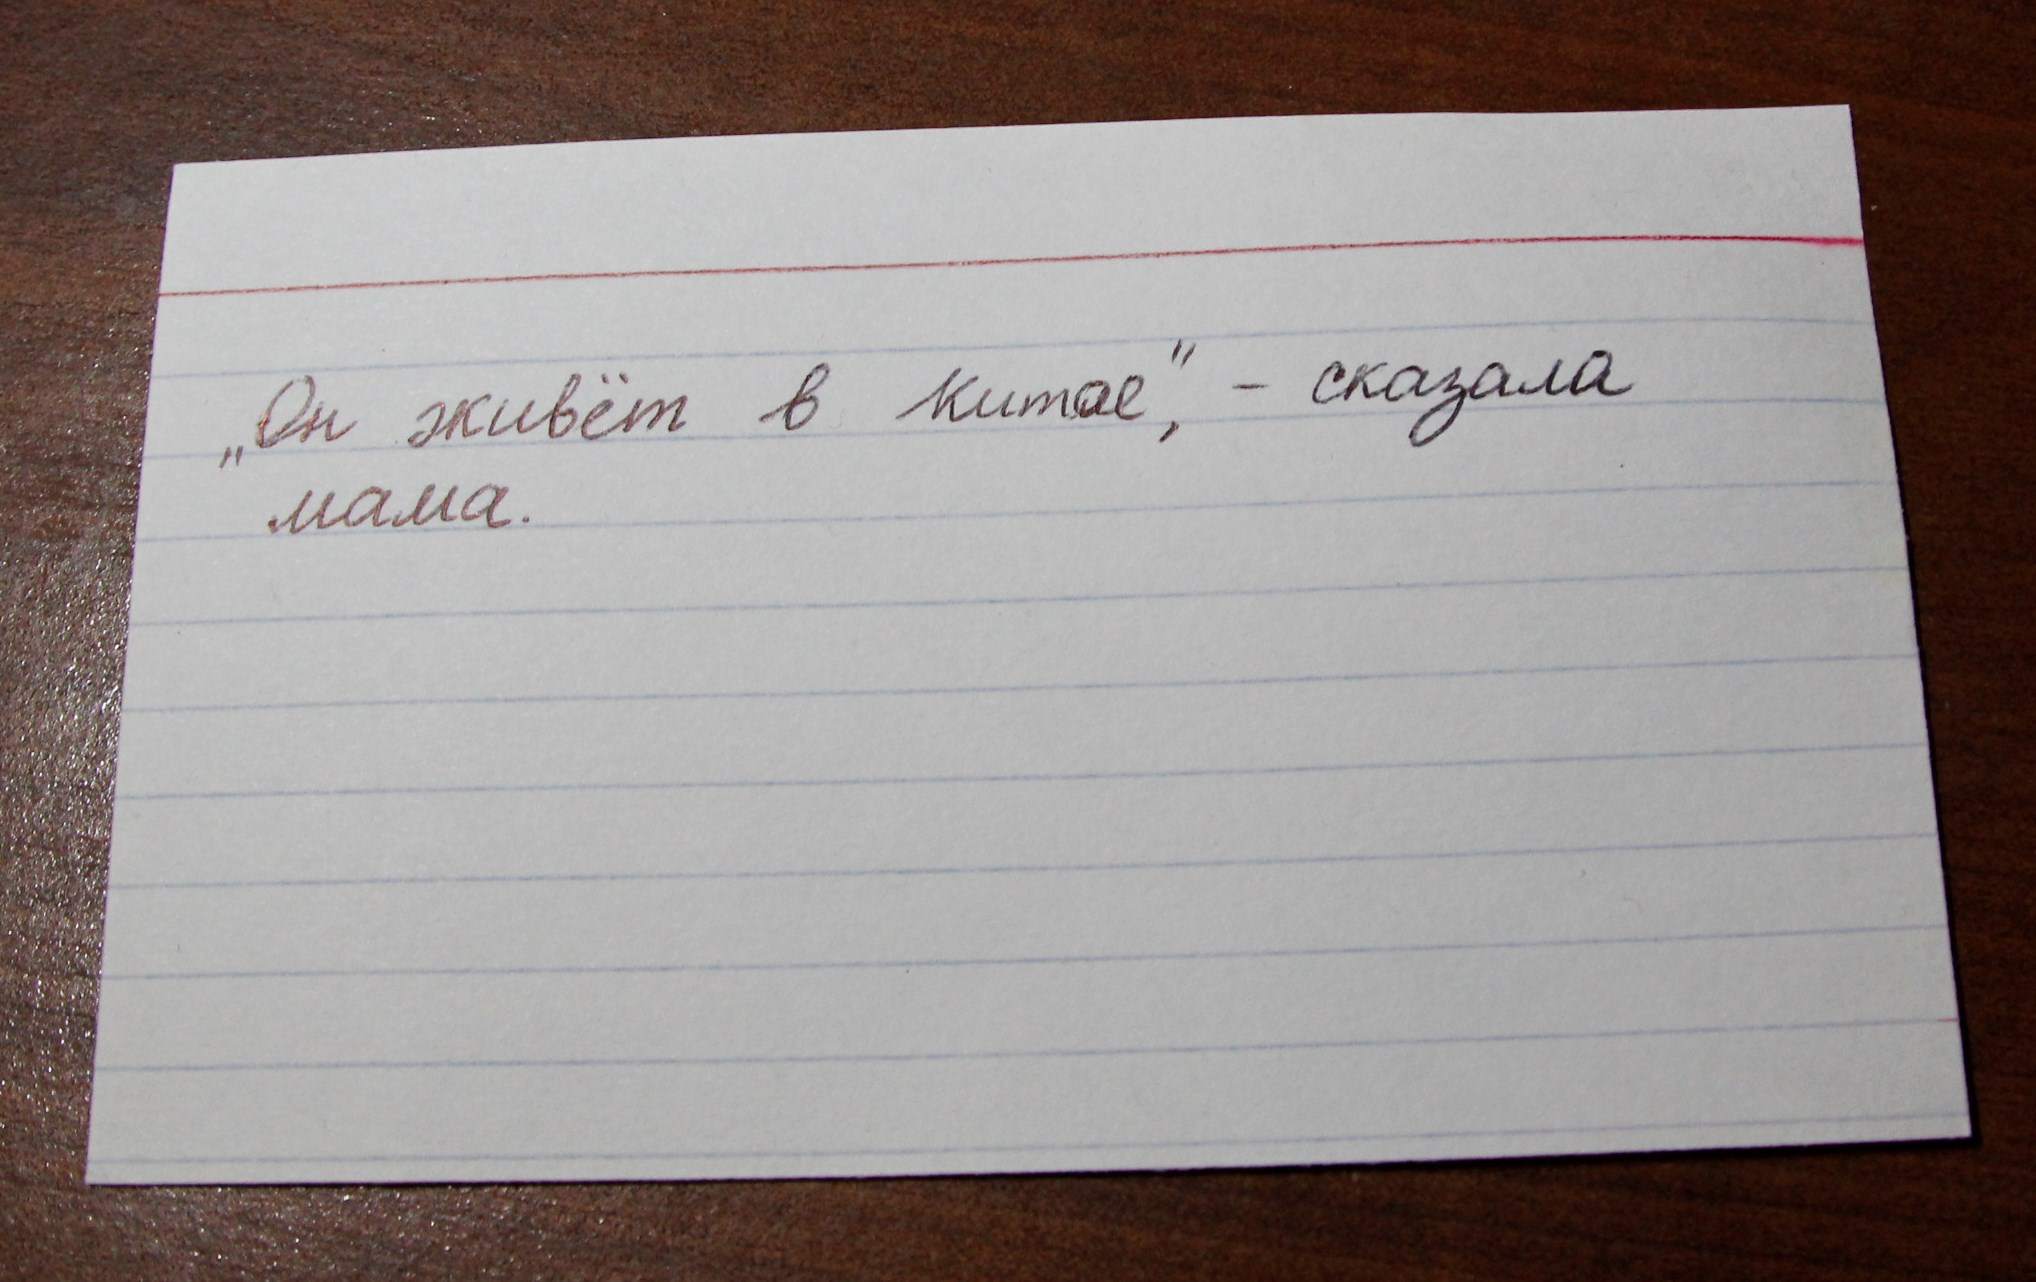 „Он живёт в Китае”, – сказала
мама.